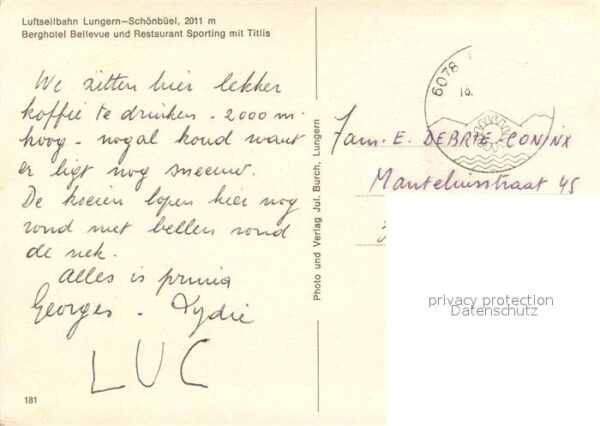 Luftseilbahn Lungern—Schönbüel, 2011 m
Berghotel Bellevue und Restaurant Sporting mit Titlis
We zitten hier lekker
koffie te drinken - 2000 m
hoog - nogal koud want
er ligt nog sneeuw.
De koeien lopen hier nog
rond met bellen rond
de nek.
Alles is prima
Georges - Lydie
LUC
181
Photo und Verlag Jul. Burch, Lungern
6078
16.
Fam. E. DEBRIE-CONINX
Manteliusstraat 45
3
privacy protection
Datenschutz